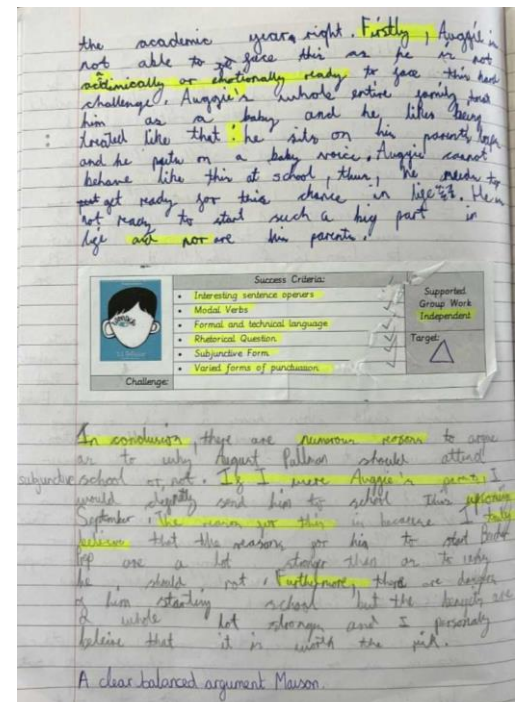 the academic years right. Firstly, Auggie is
not able to face this as he is not
acidimically or emotionally ready to face this hard
challenge. Auggie's whole entire family treat
him as a baby and he likes being
treated like that: he sits on his parents laps
and he puts on a baby voice. Auggie cannot
behave like this at school, thus, he needs to
get ready for this chance in life. He is
not ready to start such a big part in
life and nor are his parents.
Success Criteria:
Interesting sentence openers
Modal Verbs
Formal and technical language
Rhetorical Question
Subjunctive Form
Varied forms of punctuation
Challenge:
Supported
Group Work
Independent
Target:
In conclusion, there are numerous reasons to argue
as to why August Pullman should attend
subjunctive school or not. If I were Auggie's parents, I
would send him to school this
September. The reason for this is because I truly
that the reasons for him to start
are a lot stronger than as to why
he should not. Furthermore, there are dangers
of him starting school but the are
a whole lot stronger and I personaly
beleive that it is worth the
A clear balanced argument Maison.